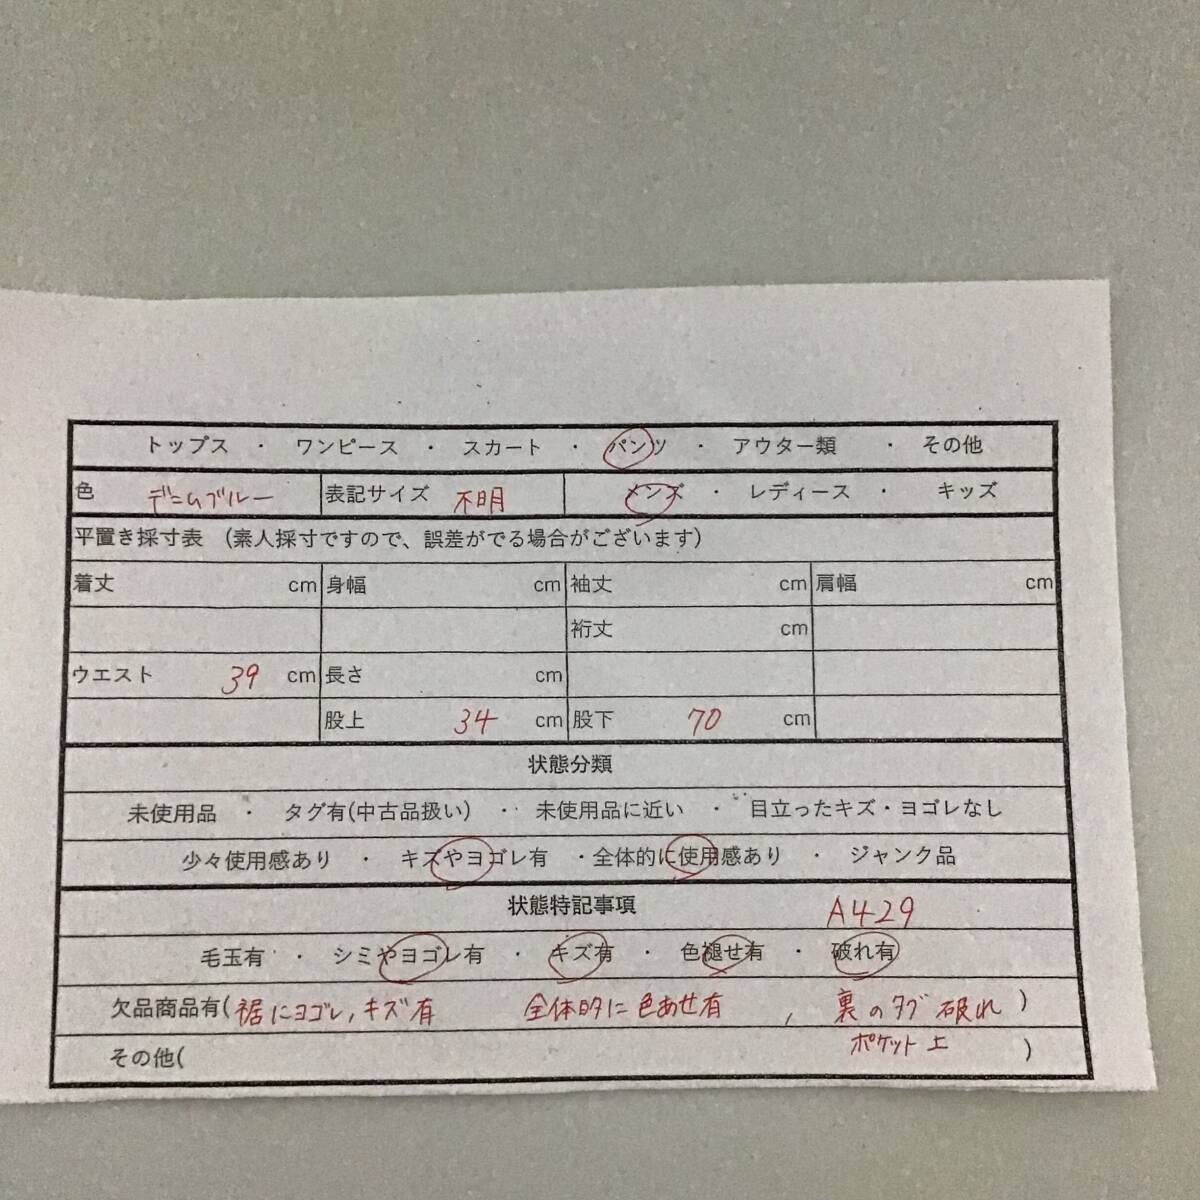 トップス ・ ワンピース ・ スカート ・ パンツ ・ アウター類 ・ その他
色 デニムブルー 表記サイズ 不明 メンズ ・ レディース ・ キッズ
平置き採寸表 (素人採寸ですので、誤差がでる場合がございます)
着丈 cm 身幅 cm 袖丈 cm 肩幅 cm
裄丈 cm
ウエスト 39 cm 長さ cm
股上 34 cm 股下 70 cm
状態分類
未使用品 ・ タグ有(中古品扱い) ・ 未使用品に近い ・ 目立ったキズ・ヨゴレなし
少々使用感あり ・ キズやヨゴレ有 ・全体的に使用感あり ・ ジャンク品
状態特記事項 A429
毛玉有 ・ シミやヨゴレ有 ・ キズ有 ・ 色褪せ有 ・ 破れ有
欠品商品有(裾にヨゴレ,キズ有 全体的に色あせ有 , 裏のタグ破れ )
その他( ポケット上 )